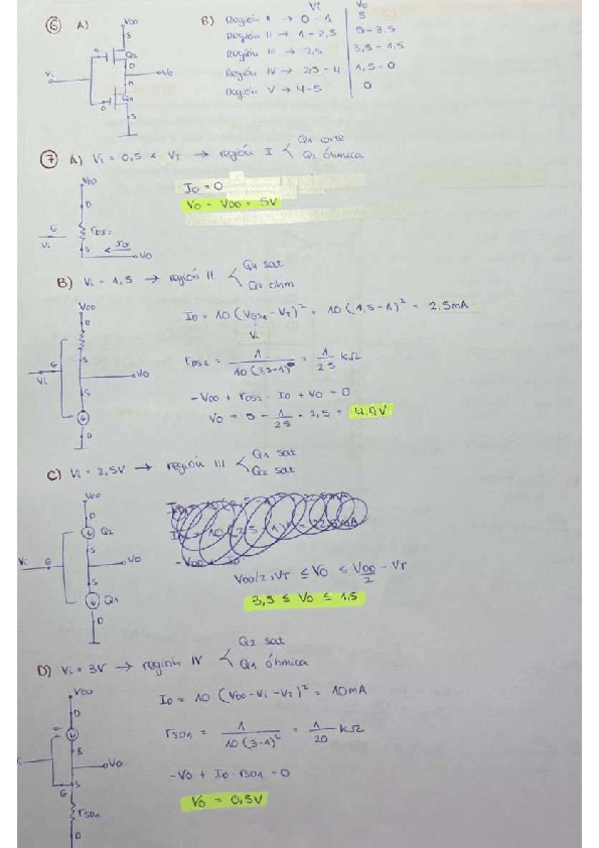 ⑥ A)
VDD
S
G Q2
D
Vi VO
D
G Q1
S
B) Vi VO
Región I → 0 - 1 5
Región II → 1 - 2,5 5 - 3,5
Región III → 2,5 3,5 - 1,5
Región IV → 2,5 - 4 1,5 - 0
Región V → 4 - 5 0
⑦ A) Vi = 0,5 < VT → región I < Q1 corte
Q2 óhmica
VDD
D
rDS2
G
Vi
S
VO
ID = 0
VO = VDD = 5V
B) Vi = 1,5 → región II < Q1 sat
Q2 ohm
VDD
D
S
Vi G VO
S
D
ID = 10 (VGS1 - VT)² = 10 (1,5 - 1)² = 2,5mA
Vi
rDS2 = 1 / 10 (3,5-1) = 1 / 25 kΩ
-VDD + rDS2 · ID + VO = 0
VO = 5 - 1/25 · 2,5 = 4,9V
C) Vi = 2,5V → región III < Q1 sat
Q2 sat
VDD
D
Q2
S
Vi G VO
S
Q1
D
VDD/2 + VT ≤ VO ≤ VDD/2 - VT
3,5 ≤ VO ≤ 1,5
D) Vi = 3V → región IV < Q2 sat
Q1 óhmica
VDD
D
G
S
VO
G S
rSD1
D
ID = 10 (VDD - Vi - VT)² = 10mA
rSD1 = 1 / 10 (3-1)² = 1 / 20 kΩ
-VO + ID · rSD1 = 0
VO = 0,5V